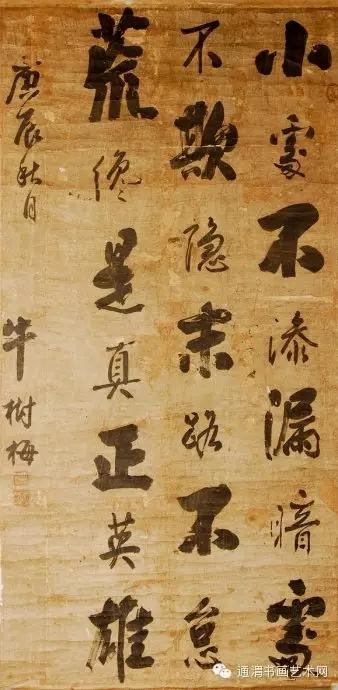 小處不滲漏暗處
不欺隐末路不怠
荒纔是真正英雄
庚辰秋月
牛樹梅
通渭书画艺术网